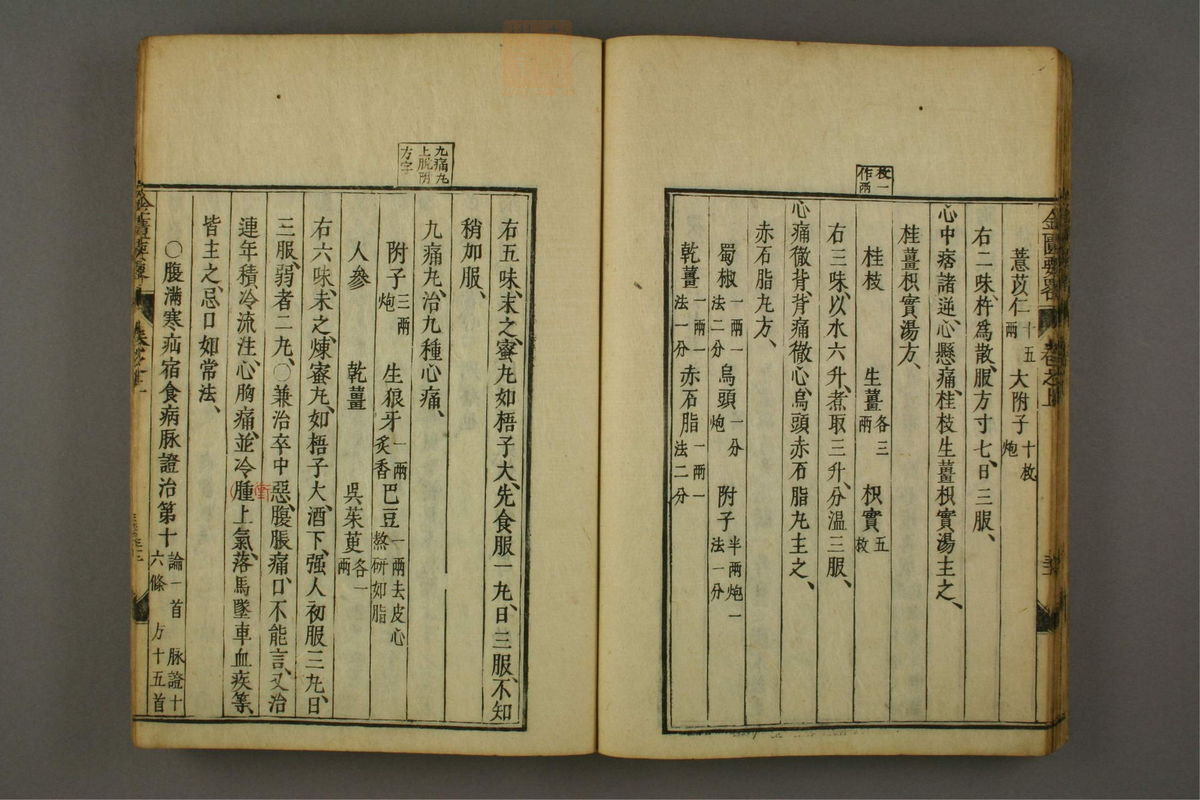 金匱要畧 卷之上
枚一
作兩
薏苡仁十五兩 大附子十枚炮
右二味、杵爲散、服方寸七、日三服、
心中痞、諸逆、心懸痛、桂枝生薑枳實湯主之、
桂薑枳實湯方、
桂枝 生薑各三兩 枳實五枚
右三味、以水六升、煮取三升、分温三服、
心痛徹背、背痛徹心、烏頭赤石脂丸主之、
赤石脂丸方、
蜀椒一兩一法二分 烏頭一分炮 附子半兩炮一法一分
乾薑一兩一法一分 赤石脂一兩一法二分
九痛丸
上脫附
方字
右五味、末之、蜜丸如梧子大、先食服一丸、日三服、不知
稍加服、
九痛丸、治九種心痛、
附子三兩炮 生狼牙一兩炙香 巴豆一兩去皮心熬研如脂
人參 乾薑 吳茱萸各一兩
右六味、末之、煉蜜丸、如梧子大、酒下、强人初服三丸、日
三服、弱者二丸、〇兼治卒中惡、腹脹痛、口不能言、又治
連年積冷流注、心胸痛、並冷腫上氣、落馬墜車血疾等、
皆主之、忌口如常法、
〇腹滿寒疝宿食病脉證治第十 論一首 脉證十六條 方十五首